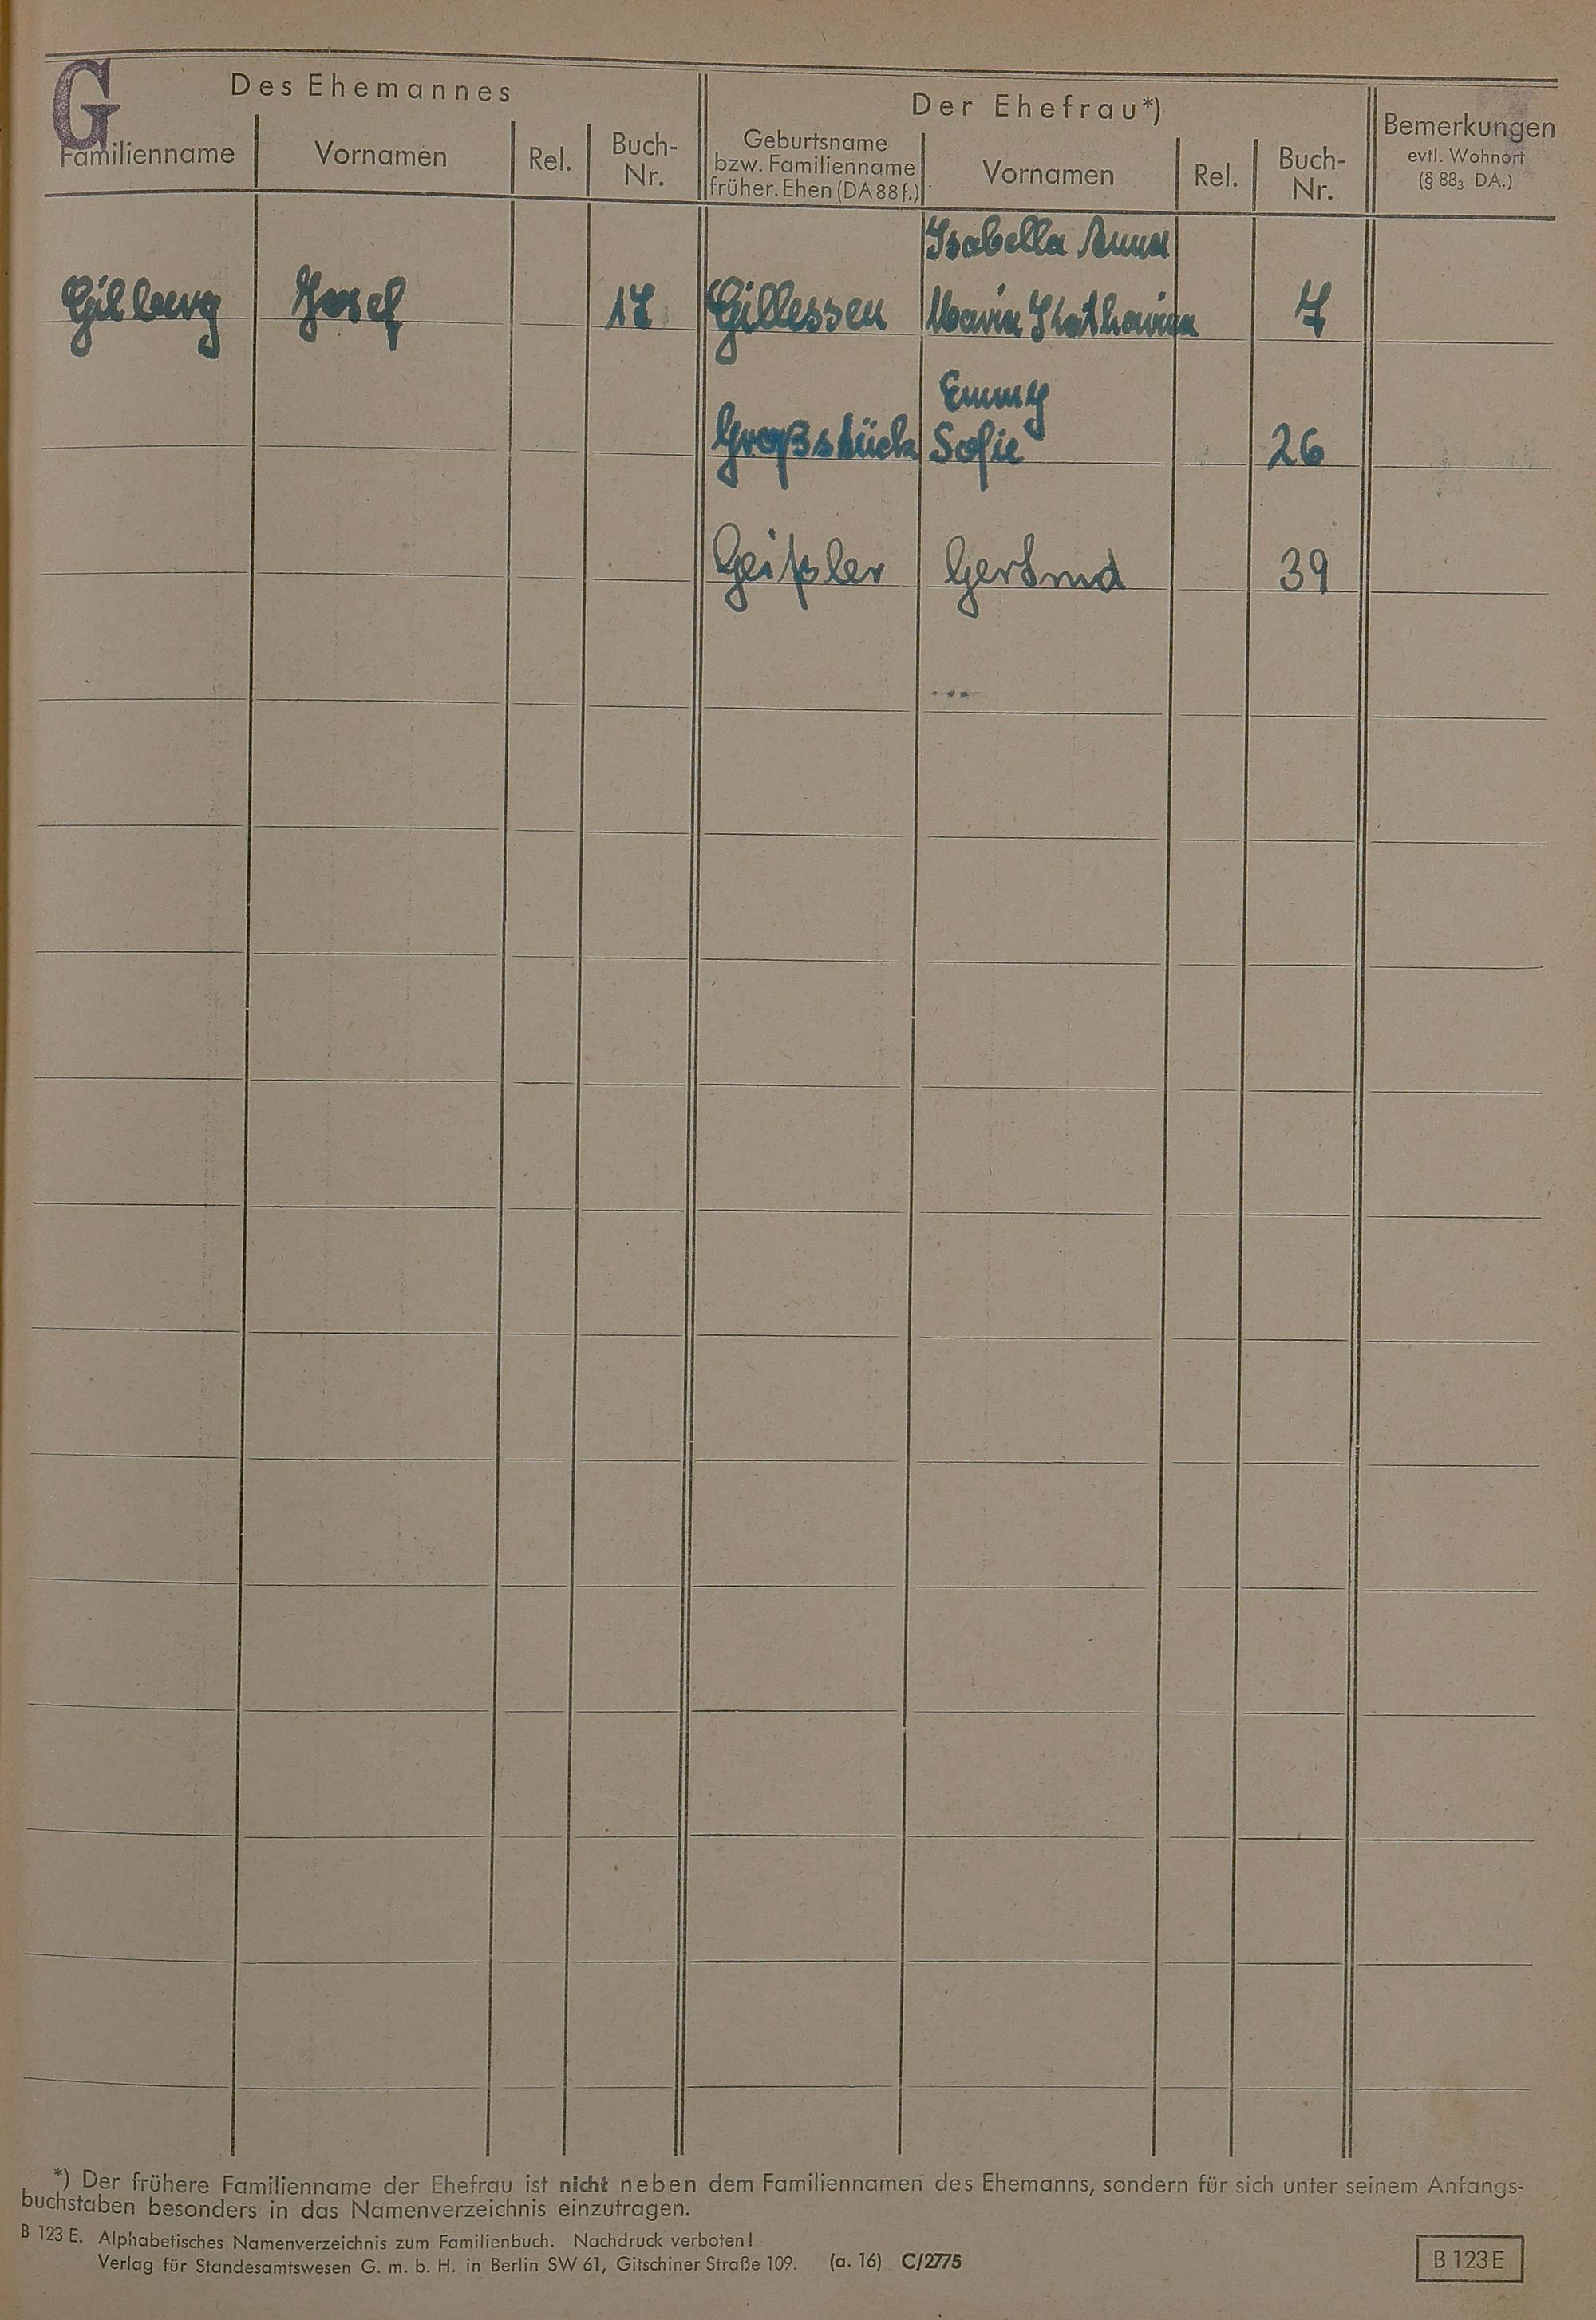 G
Des Ehemannes
Der Ehefrau*)
Bemerkungen
evtl. Wohnort
(§ 88₃ DA.)
Familienname
Vornamen
Rel.
Buch-
Nr.
Geburtsname
bzw. Familienname
früher. Ehen (DA 88 f.)
Vornamen
Rel.
Buch-
Nr.
Isabella Anna
Gilberg Josef 17 Gillessen Maria Katharina 7
Emmy
Großstück Sofie 26
Geißler Gertrud 39
*) Der frühere Familienname der Ehefrau ist nicht neben dem Familiennamen des Ehemanns, sondern für sich unter seinem Anfangs-
buchstaben besonders in das Namenverzeichnis einzutragen.
B 123 E. Alphabetisches Namenverzeichnis zum Familienbuch. Nachdruck verboten!
Verlag für Standesamtswesen G. m. b. H. in Berlin SW 61, Gitschiner Straße 109. (a. 16) C/2775
B 123 E